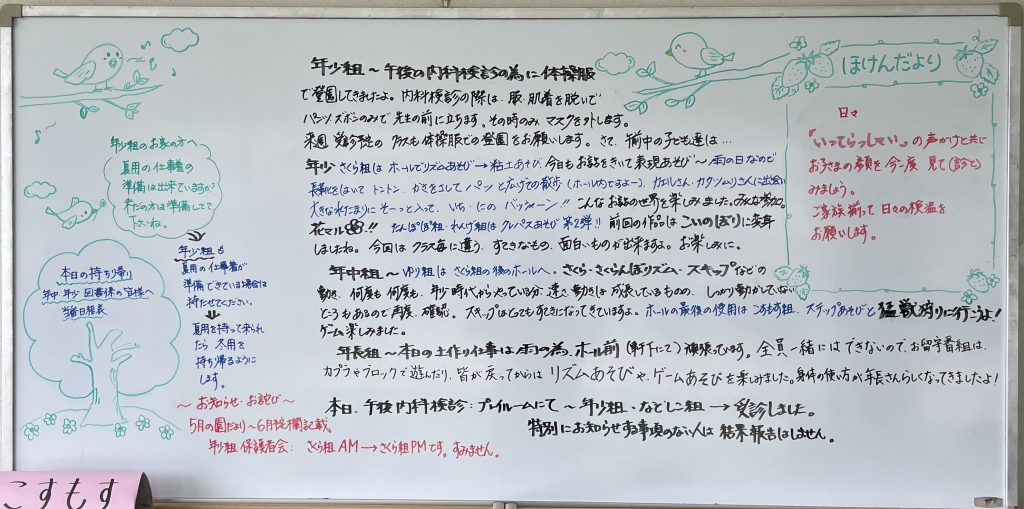 年少組のお家の方へ
夏用の仕事着の
準備は出来ていますか?
まだの方は準備してて
下さいね。
年少組も
夏用の仕事着が
準備できている場合は
持たせてください。
夏用を持って来られ
たら冬用を
持ち帰るように
します。
本日の持ち帰り
年中 年少 図書係の皆様へ
当番日程表
〜お知らせ・お詫び〜
5月の園だより〜6月院欄記載
年少組 保護者会: さくら組AM→さくら組PMです。すみません。
年少組〜午後の内科検診の為に体操服
で登園してきましたよ。内科検診の際は、服・肌着を脱いで
パンツ ズボンのみで先生の前に立ちます。その時のみマスクを外します。
来週 受診予定の クラスも体操服での登園をお願いします。さて、午前中の子ども達は…
年少 さくら組は ホールでリズムあそび→粘土あそび、今日もお話をきいて表現あそび〜雨の日なので
長靴をはいて トントン、かさをさして パッと広げての散歩(ホール内ですよー)、カエルさん・カタツムリさんに出会い
大きな水たまりに そーっと入って、いち・にの バッシャーン!! こんなお話の世界を楽しみました。みんな参加。
花マル!! たんぽぽ組・れんげ組は クレパスあそび 第2弾!! 前回の作品は こいのぼりに変身
しましたね。今回は クラス毎に違う、すてきなもの、面白いものが出来ますよ。お楽しみに。
年中組〜ゆり組は さくら組の後のホールへ。さくら・さくらんぼリズム・スキップなどの
動き、何度も何度も、年少時代からやっている分、速さ、動きは成長しているものの、しっかり動かしていない
ところもあるので再度、確認。スキップはとってもすてきになってきていますよ。ホールの最後の使用はこすもす組、ステップあそびと 猛獣狩りに行こうよ!
ゲーム楽しみました。
年長組〜本日の土作り仕事は、雨の為、ホール前(軒下にて)頑張っています。全員一緒にはできないので、お留守番組は、
カプラやブロックで遊んだり、皆が戻ってからは リズムあそびや、ゲームあそびを楽しみました。身体の使い方が年長さんらしくなってきましたよ!
本日、午後内科検診:プレイルームにて〜年少組・なでしこ組→受診しました。
特別にお知らせする事項のない人は結果報告はしません。
ほけんだより
日々
「いってらっしゃい」の声かけと共に
お子さまの顔を今一度 見て(診て)
みましょう。
ご家族揃って日々の検温を
お願いします。
こすもす